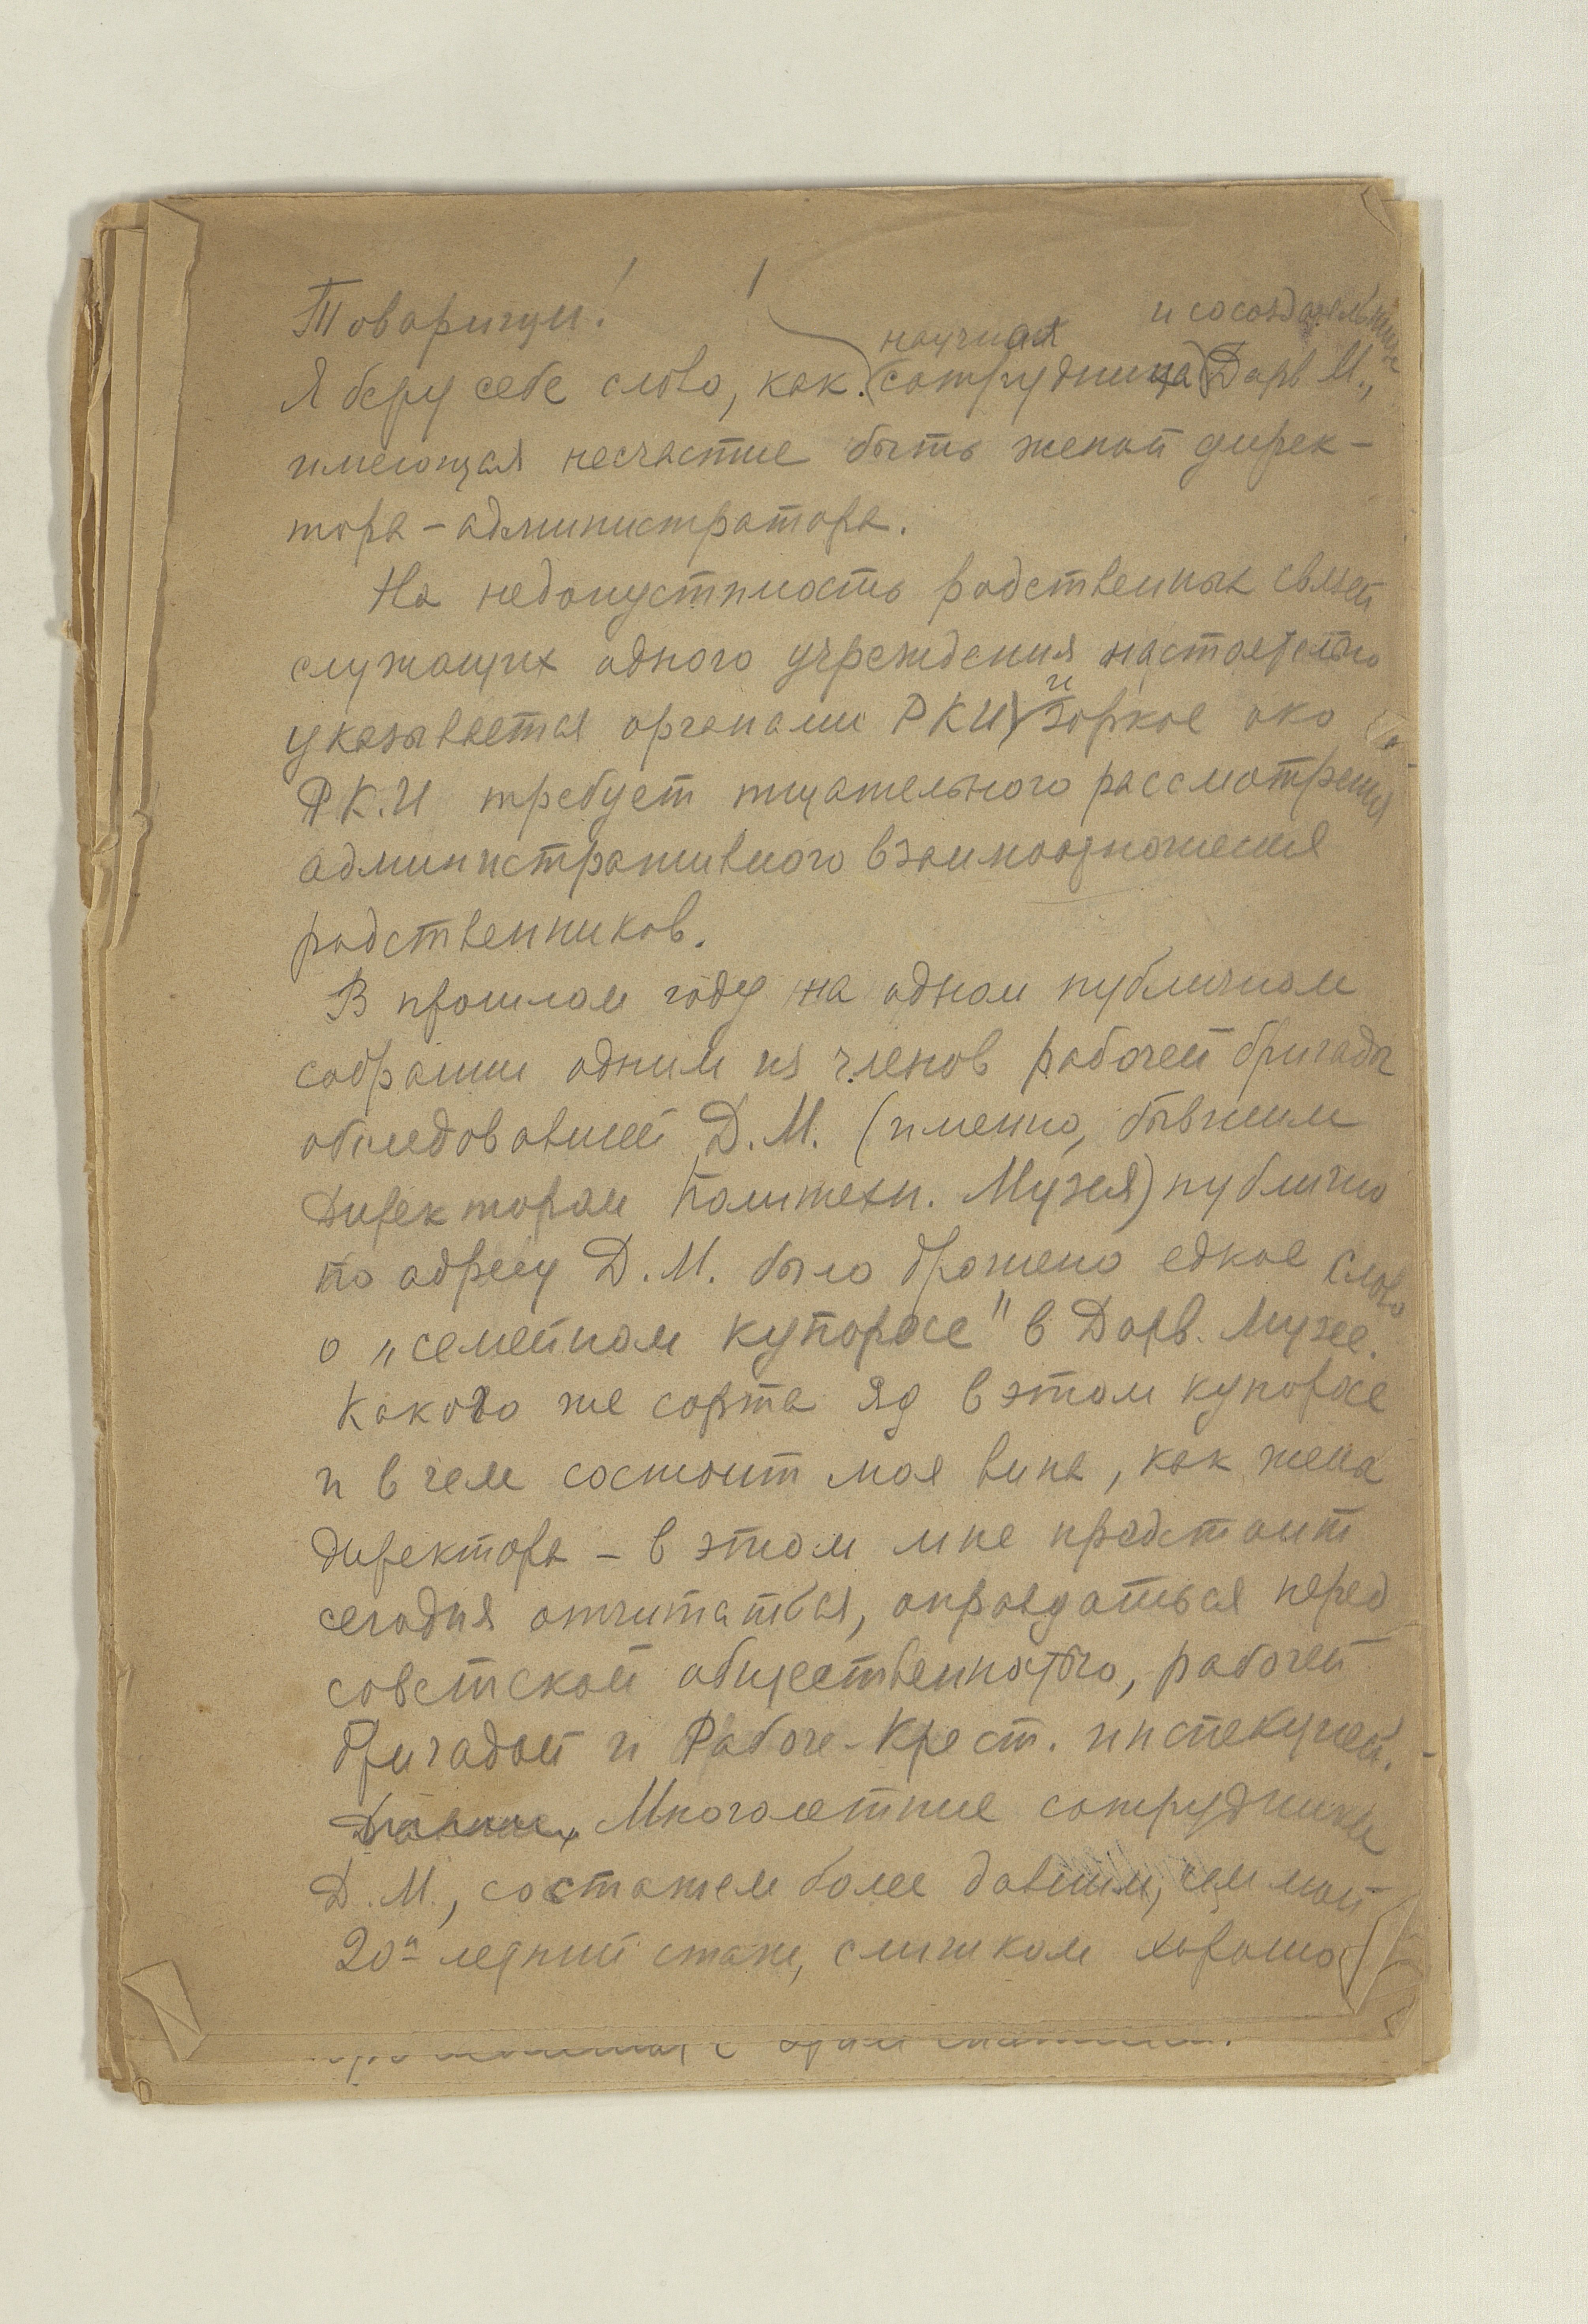 Товарищи!
и сосоздательница
научная
Я беру себе слово, как (сотрудница) Дарв М.,
имеющая несчастие быть женой дирек-
тора - администратора.
На недопустимость родственных связей
служащих одного учреждения настоятельно
и
указывается органами РКИ) Зоркое око
РК.И требует тщательного рассмотрения
административного взаимоотношения
родственников.
В прошлом году на одном публичном
собрании одним из членов рабочей бригады
обследовавшей Д.М. (именно, бывшим
директором Политехн. Музея) публично
по адресу Д.М. было брошено едкое слово
о „семейном купоросе" в Дарв. Музее.
Какого же сорта яд в этом купоросе
и в чем состоит моя вина, как жена
директора - в этом мне предстоит
сегодня отчитаться, оправдаться перед
советской общественностью, рабочей
бригадой и Рабоче-Крест. инспекцией.
Многолетние сотрудники
Д.М., со стажем более давним, чем мой
20-летний стаж, слишком хорошо